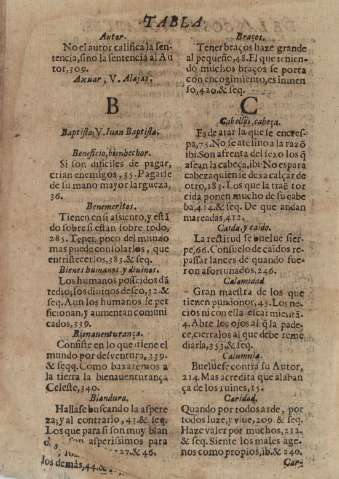 TABLA
Autor.
No el autor califica la sen-
tencia, sino la sentencia al Au
tor, 309.
Axuar, V. Alajas.
B
Baptista, V. Iuan Baptista.
Beneficio, bienhechor.
Si son dificiles de pagar,
crian enemigos, 35. Pagarse
de su mano mayor largueza,
36.
Benemeritos.
Tienen en sí assiento, y està
do sobre si estan sobre todo,
285. Tener poco del mundo
mas puede consolarlos, que
entristecerlos, 383. & seq.
Bienes humanos, y diuinos.
Los humanos posseidos dà
tedio, los diuinos deseo, 32. &
seq. Aun los humanos se per
ficionan, y aumentan comuni
cados, 339.
Bienauenturança.
Consiste en lo que tiene el
mundo por desventura, 339.
& seqq. Como baxaremos a
la tierra la bienauenturança
Celeste, 340.
Blandura.
Hallase buscando la aspere
za; y al contrario, 43. & seq.
Los que para si son muy blan
son asperissimos para
27. & 46.
los demàs, 44. &
Braços.
Tener braços haze grande
al pequeño, 48. El que tenien-
do muchos braços se porta
con encogimiento, es inmen
so, 420. & seq.
C
Cabellos, cabeça.
Es de atar la que se encres-
pa, 75. No se atesino a la razõ
ibi. Son afrenta del sexo los q̃
afean la cabeça, ibi. No es para
cabeza quien se dexa calçar de
otro, 183. Los que la traẽ tor
cida ponen mucho de su cabe
ça, 414. & seq. De que andan
mareadas, 412.
Caida, y caido.
La rectitud se buelue sier-
pe, 66. Consuelo de caidos re-
passar lances de quando fue-
ron afortunados, 246.
Calamidad
Gran maestra de los que
tienen pundonor, 43. Los ne-
cios ni con ella escarmientã
4. Abre los ojos al q̃ la pade-
ce, cierralos al que debe reme
diarla, 353. & seq.
Calumnia.
Bueluese contra su Autor,
214. Mas acredita que alaban
ça de los ruines, 15.
Caridad.
Quando por todos arde, por
todos luze, y viue, 209. & seq.
Haze valer por muchos, 212.
& seq. Siente los males age-
nos como propios, ib. & 240.
Car-